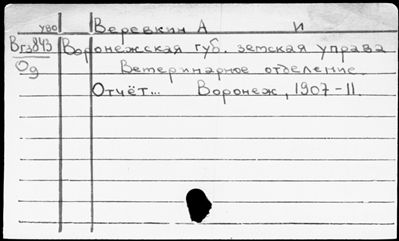 уво Веревкин А И
Вгз843 Воронежская губ. земская управа
Од Ветеринарное отделение.
Отчёт... Воронеж, 1907-11.